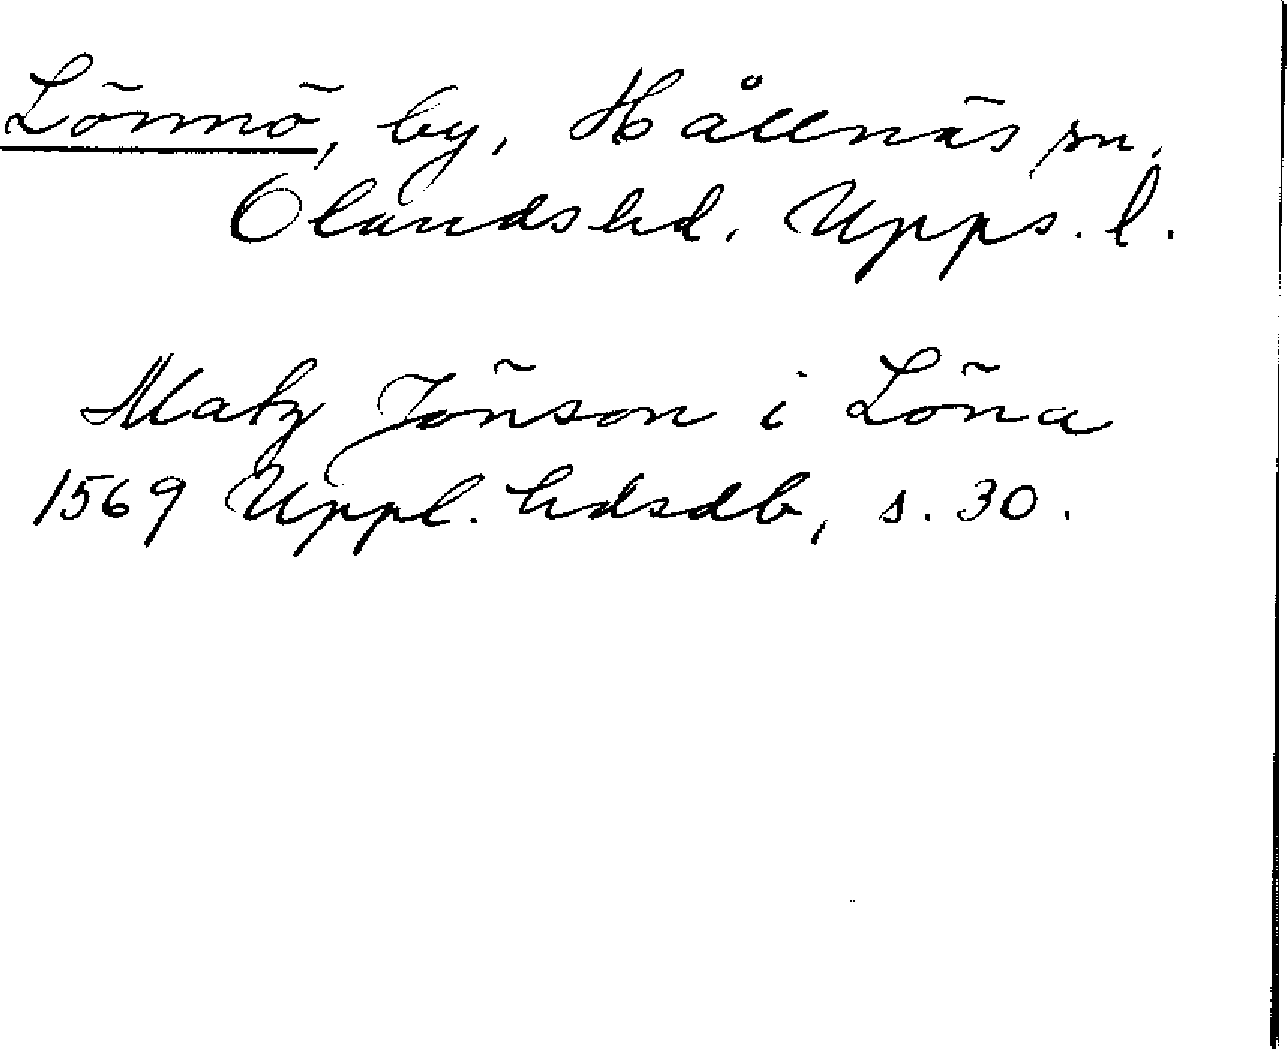 Lönnö, by, Hållnäs sn,
Olandshd. Upps. l.
Matz Jönson i Löna
1569 Uppl. hdsdb, s. 30.